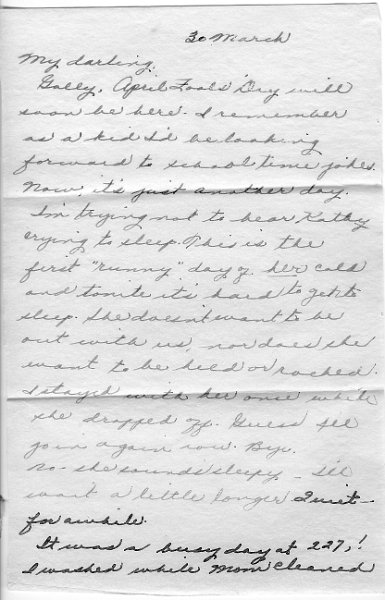 30 March
My darling,
Golly, April Fools' Day will
soon be here. I remember
as a kid I'd be looking
forward to school time jokes.
Now, it's just another day.
I'm trying not to hear Kathy
crying to sleep. This is the
first "runny" day of her cold
and tonite it's hard to get to
sleep. She doesn't want to be
out with us, nor does she
want to be held or rocked.
I stayed with her once while
she dropped off. Guess I'll
join again now. Bye.
No - she sounds sleepy - I'll
wait a little longer
for awhile.
It was a busy day at 227,!
I washed while Mom cleaned